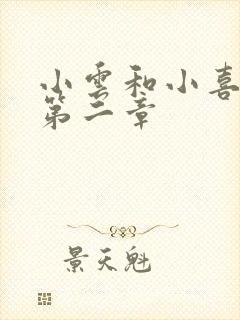 小雲和小喜
第二章
景天魁